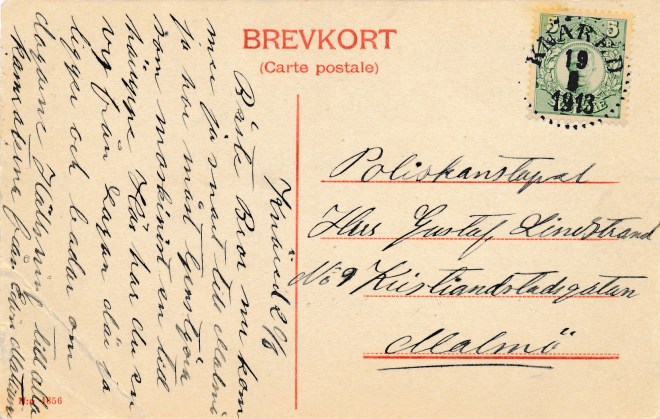 BREVKORT
(Carte postale)
5
KNÄRED
19
8
1913
Knäred 2/8
Bäste Bror nu kom
mer ja snart till Malmö
ja har måst tjenstgöra
som maskinist en tid
häruppe Här har du en
vy från Lagan där ja
ligger och badar om
dagarne Hällsning till alla
kamraterne från
Poliskonstapel
Herr Gustaf Lindstrand
No 9 Kistianstadsgatan
Malmö
Nro 4856